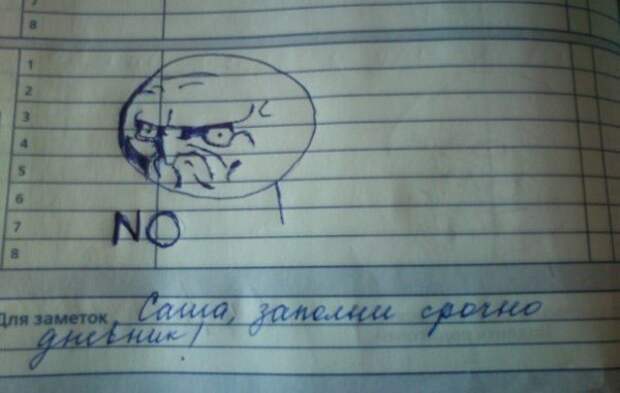 8
1
2
3
4
5
6
NO 7
8
Для заметок Саша, заполни срочно
дневник!